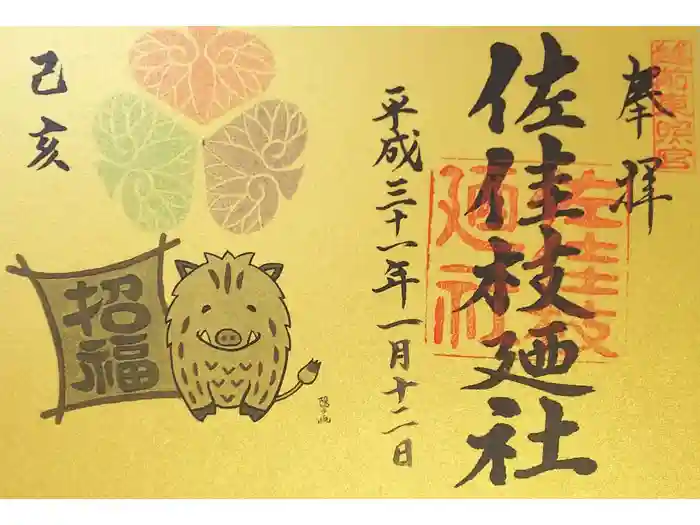 越前東照宮
奉拝
佐佳枝廼社
佐佳枝廼社
平成三十一年一月十二日
己亥
招福